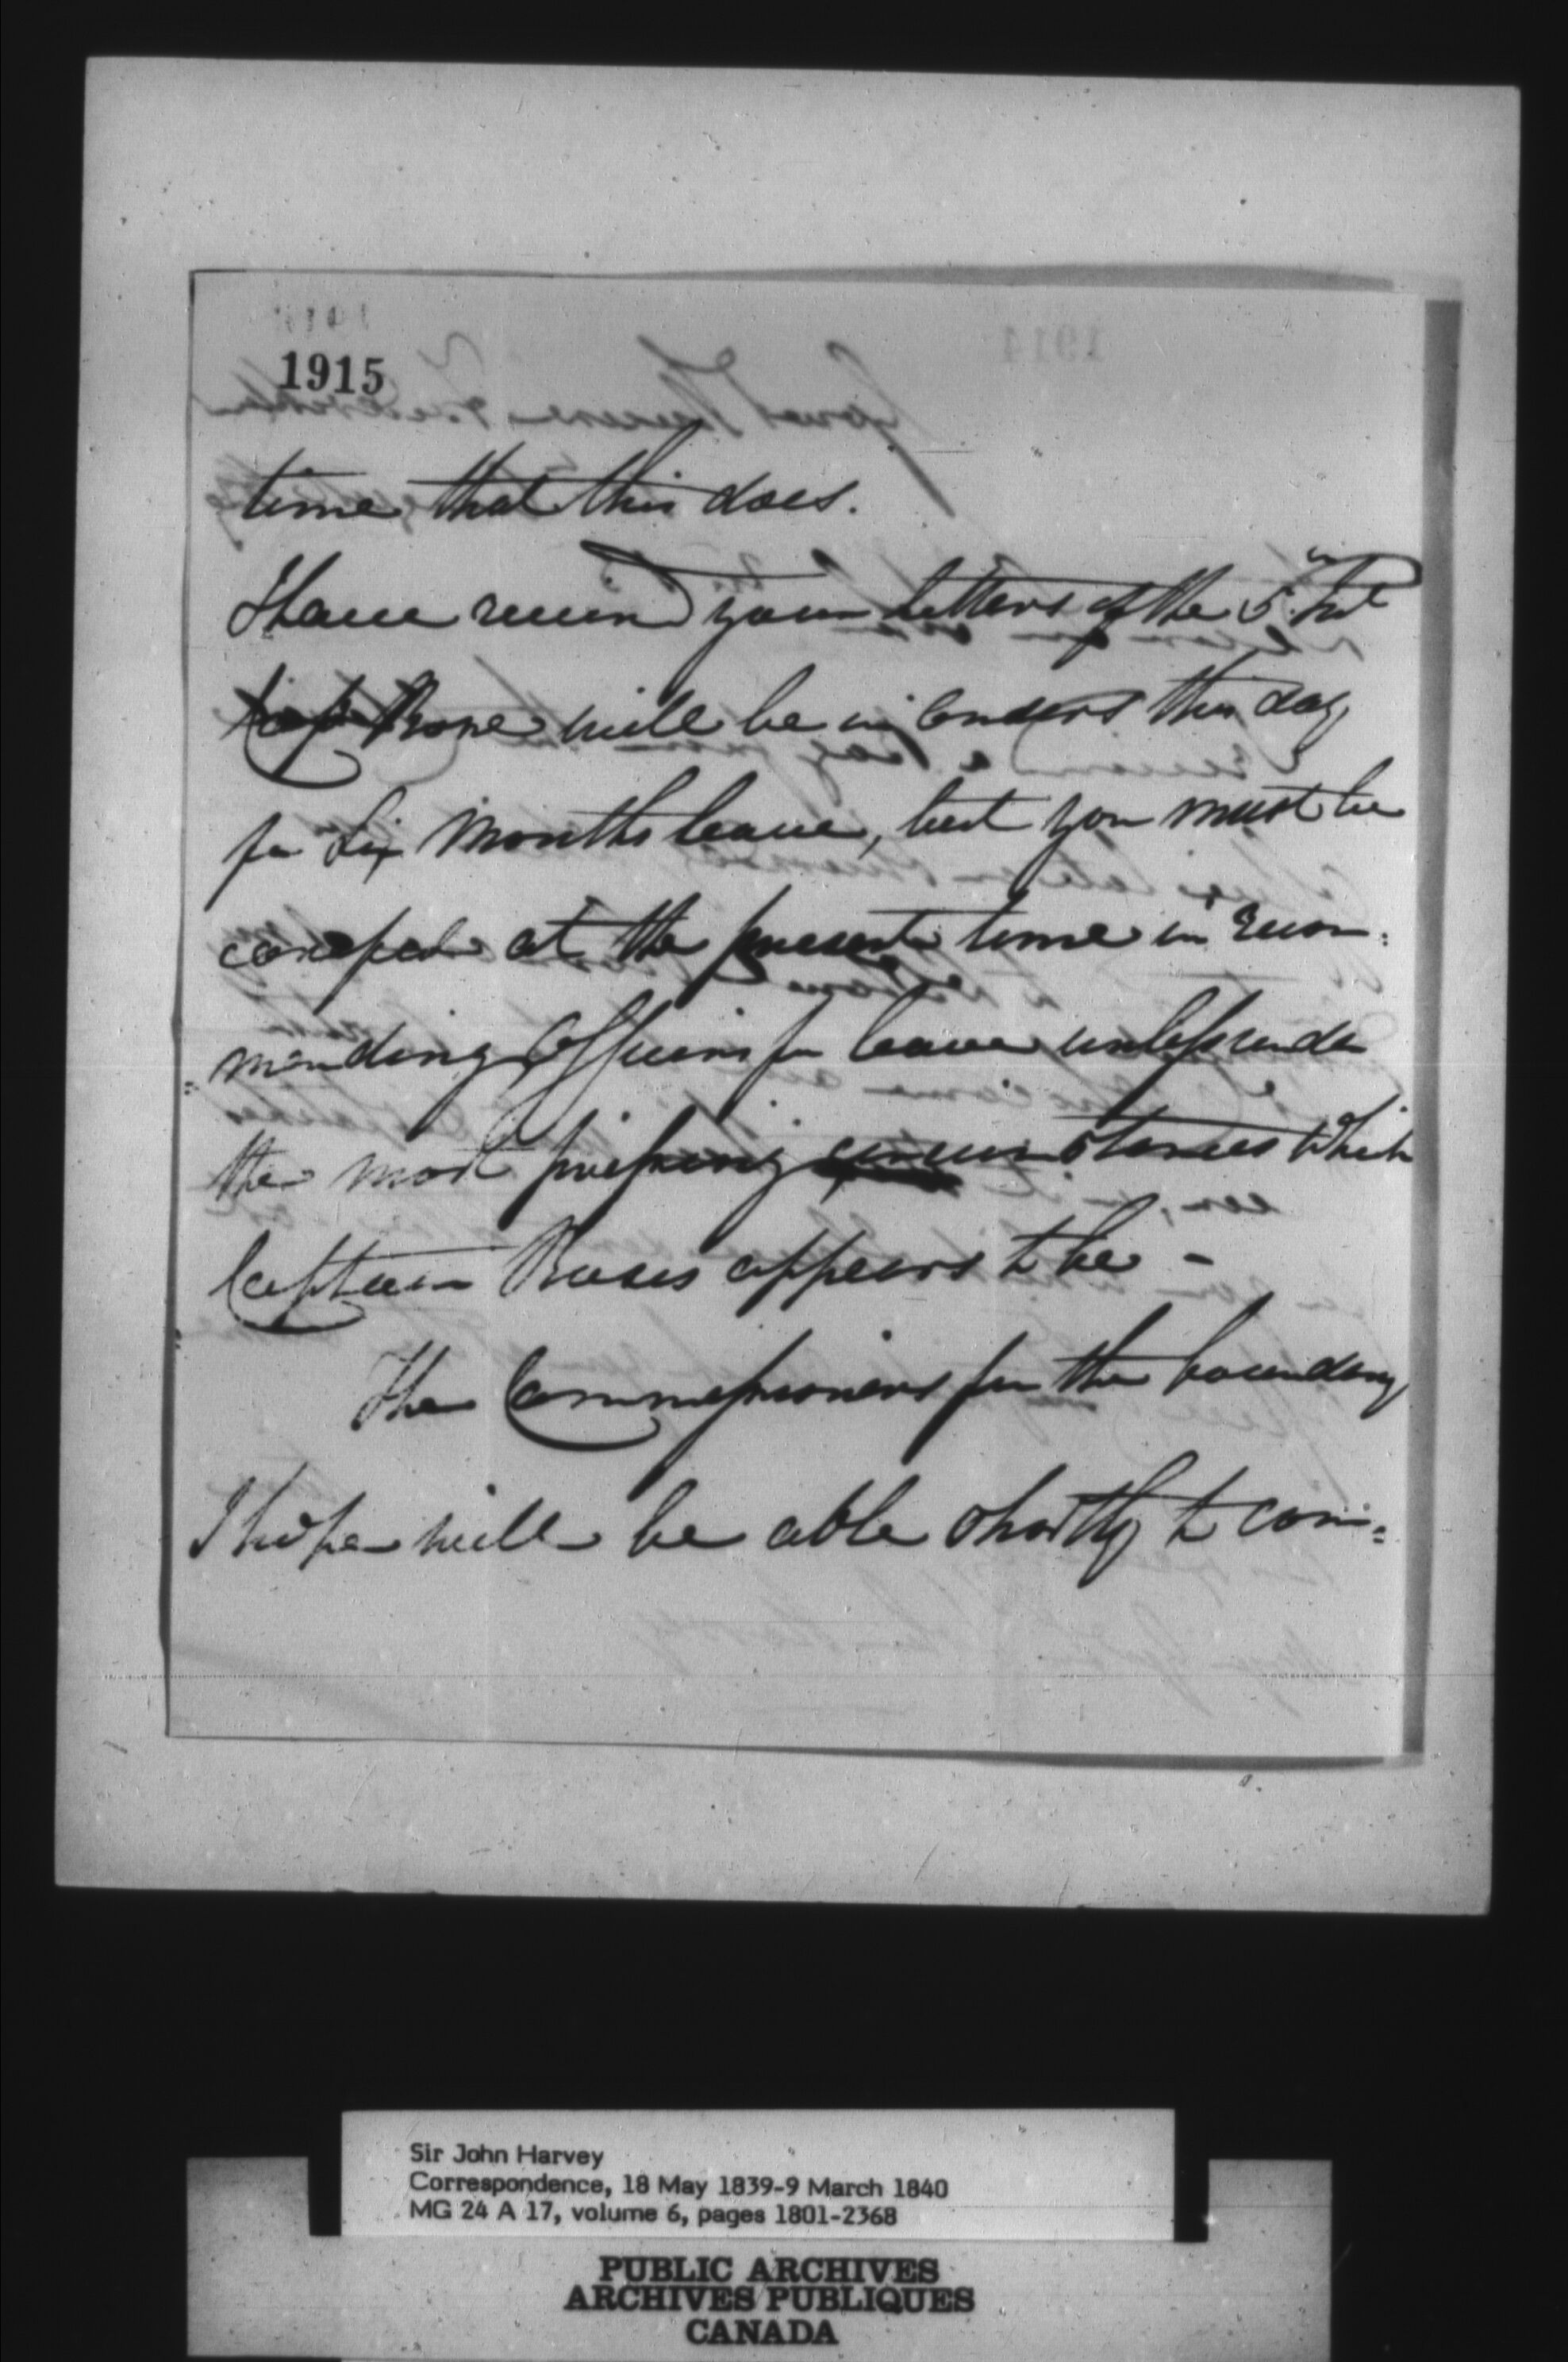 1915
time that this does.
I have received your letters of the 5th Inst
Capt Rose will be in orders this day
for Six Months leave, but you must be
careful at the present time in recom:
:mending Officers for leave unless under
the most pressing circumstances which
Captain Roses appears to be -
The Commissioners for the boundary
I hope will be able shortly to com=
Sir John Harvey
Correspondence, 18 May 1839-9 March 1840
MG 24 A 17, volume 6, pages 1801-2368
PUBLIC ARCHIVES
ARCHIVES PUBLIQUES
CANADA